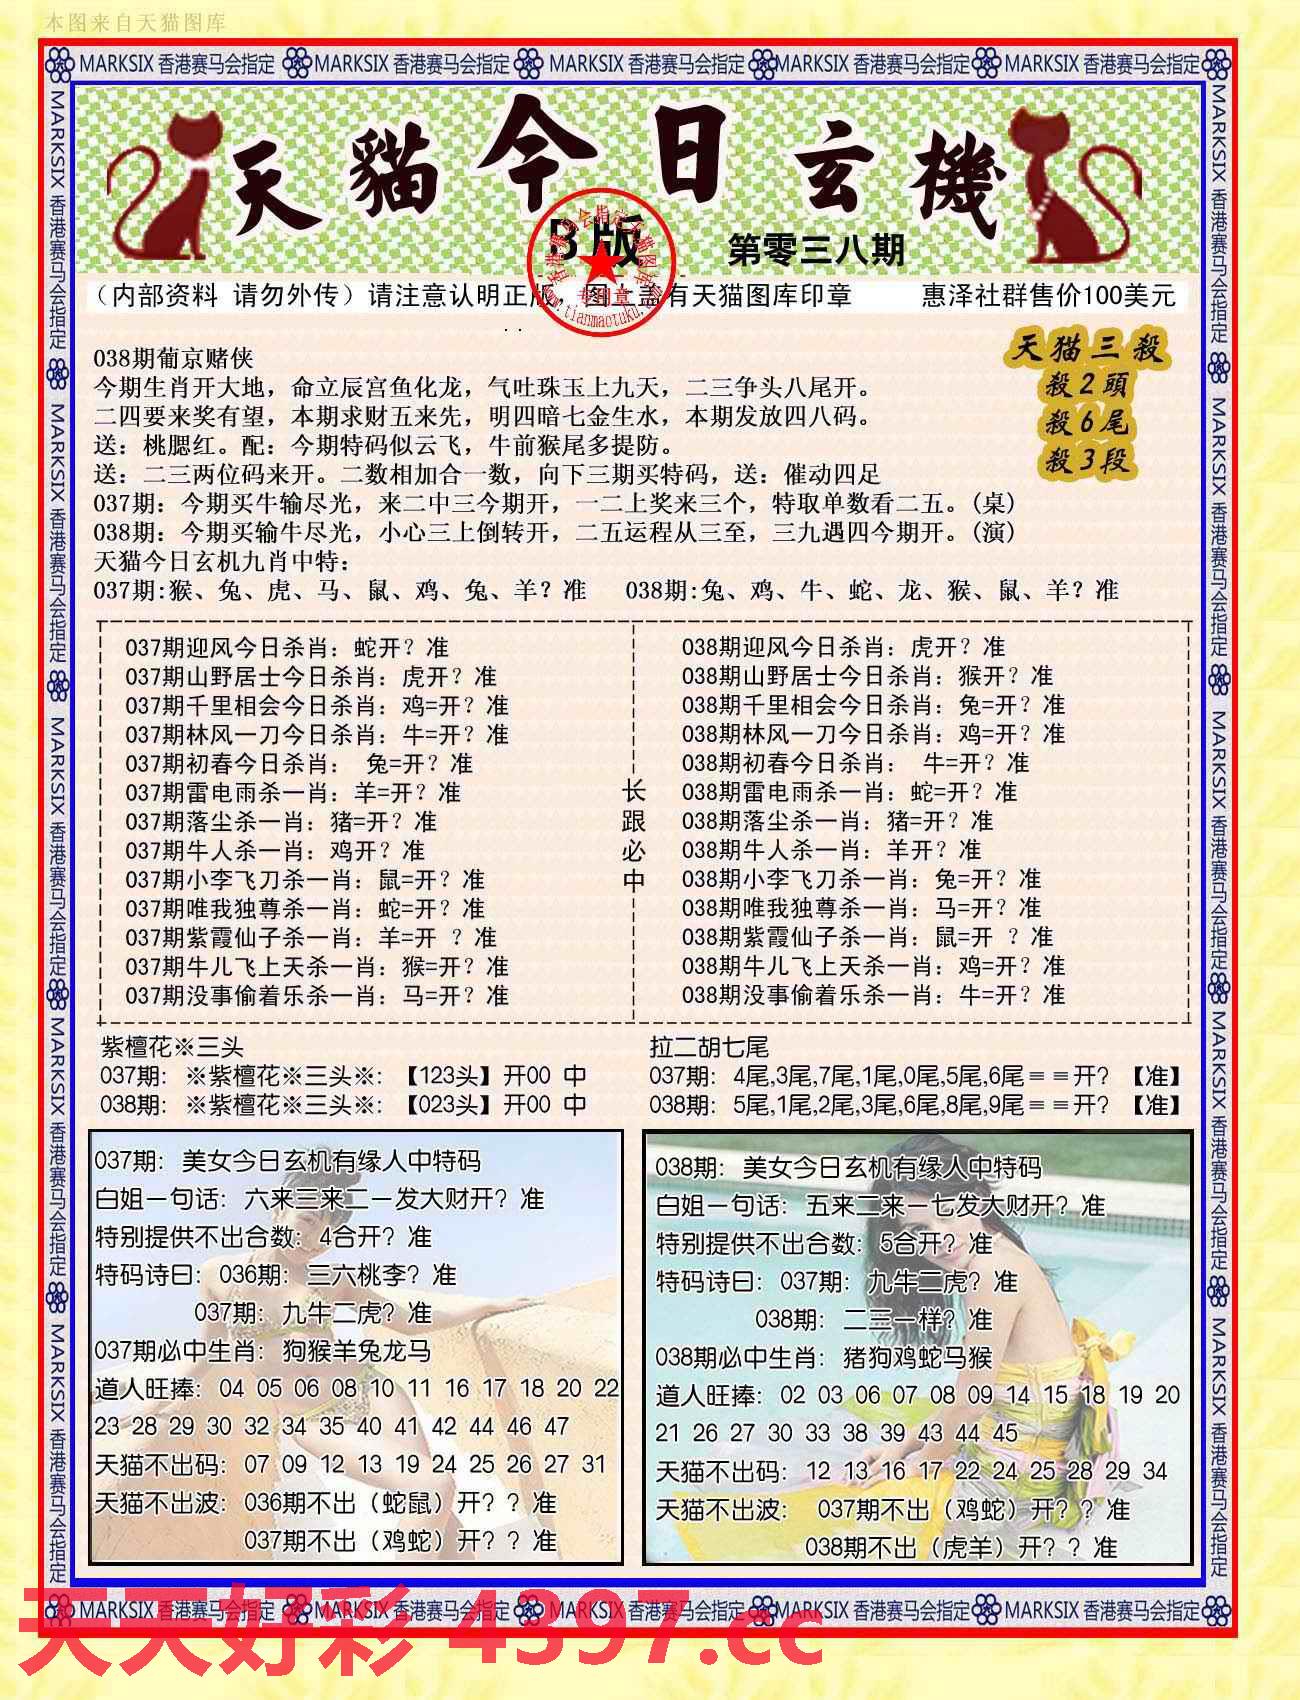 本图来自天猫图库
MARKSIX 香港赛马会指定 MARKSIX 香港赛马会指定 MARKSIX 香港赛马会指定 MARKSIX 香港赛马会指定 MARKSIX 香港赛马会指定
天貓今日玄機
B版
第零三八期
专用章
www.tianmaotuku.com
（内部资料 请勿外传）请注意认明正版，图上盖有天猫图库印章 惠泽社群售价100美元
天猫三殺
殺2頭
殺6尾
殺3段
038期葡京赌侠
今期生肖开大地，命立辰宫鱼化龙，气吐珠玉上九天，二三争头八尾开。
二四要来奖有望，本期求财五来先，明四暗七金生水，本期发放四八码。
送：桃腮红。配：今期特码似云飞，牛前猴尾多提防。
送：二三两位码来开。二数相加合一数，向下三期买特码，送：催动四足
037期：今期买牛输尽光，来二中三今期开，一二上奖来三个，特取单数看二五。(桌)
038期：今期买输牛尽光，小心三上倒转开，二五运程从三至，三九遇四今期开。(演)
天猫今日玄机九肖中特：
037期:猴、兔、虎、马、鼠、鸡、兔、羊？准 038期:兔、鸡、牛、蛇、龙、猴、鼠、羊？准
037期迎风今日杀肖：蛇开？准
037期山野居士今日杀肖：虎开？准
037期千里相会今日杀肖：鸡=开？准
037期林风一刀今日杀肖：牛=开？准
037期初春今日杀肖： 兔=开？准
037期雷电雨杀一肖：羊=开？准
037期落尘杀一肖：猪=开？准
037期牛人杀一肖：鸡开？准
037期小李飞刀杀一肖：鼠=开？准
037期唯我独尊杀一肖：蛇=开？准
037期紫霞仙子杀一肖：羊=开 ？准
037期牛儿飞上天杀一肖：猴=开？准
037期没事偷着乐杀一肖：马=开？准
长跟必中
038期迎风今日杀肖：虎开？准
038期山野居士今日杀肖：猴开？准
038期千里相会今日杀肖：兔=开？准
038期林风一刀今日杀肖：鸡=开？准
038期初春今日杀肖： 牛=开？准
038期雷电雨杀一肖：蛇=开？准
038期落尘杀一肖：猪=开？准
038期牛人杀一肖：羊开？准
038期小李飞刀杀一肖：兔=开？准
038期唯我独尊杀一肖：马=开？准
038期紫霞仙子杀一肖：鼠=开 ？准
038期牛儿飞上天杀一肖：鸡=开？准
038期没事偷着乐杀一肖：牛=开？准
紫檀花※三头
037期：※紫檀花※三头※：【123头】开00 中
038期：※紫檀花※三头※：【023头】开00 中
拉二胡七尾
037期：4尾,3尾,7尾,1尾,0尾,5尾,6尾＝＝开？【准】
038期：5尾,1尾,2尾,3尾,6尾,8尾,9尾＝＝开？【准】
037期：美女今日玄机有缘人中特码
白姐一句话：六来三来二一发大财开？准
特别提供不出合数：4合开？准
特码诗曰：036期：三六桃李？准
037期：九牛二虎？准
037期必中生肖：狗猴羊兔龙马
道人旺捧：04 05 06 08 10 11 16 17 18 20 22
23 28 29 30 32 34 35 40 41 42 44 46 47
天猫不出码：07 09 12 13 19 24 25 26 27 31
天猫不出波：036期不出（蛇鼠）开？？准
037期不出（鸡蛇）开？？准
038期：美女今日玄机有缘人中特码
白姐一句话：五来二来一七发大财开？准
特别提供不出合数：5合开？准
特码诗曰：037期：九牛二虎？准
038期：二三一样？准
038期必中生肖：猪狗鸡蛇马猴
道人旺捧：02 03 06 07 08 09 14 15 18 19 20
21 26 27 30 33 38 39 43 44 45
天猫不出码：12 13 16 17 22 24 25 28 29 34
天猫不出波： 037期不出（鸡蛇）开？？准
038期不出（虎羊）开？？准
MARKSIX 香港赛马会指定 MARKSIX 香港赛马会指定 MARKSIX 香港赛马会指定 MARKSIX 香港赛马会指定 MARKSIX 香港赛马会指定
MARKSIX 香港赛马会指定 MARKSIX 香港赛马会指定 MARKSIX 香港赛马会指定 MARKSIX 香港赛马会指定 MARKSIX 香港赛马会指定
MARKSIX 香港赛马会指定 MARKSIX 香港赛马会指定 MARKSIX 香港赛马会指定 MARKSIX 香港赛马会指定 MARKSIX 香港赛马会指定
天天好彩 4397.cc